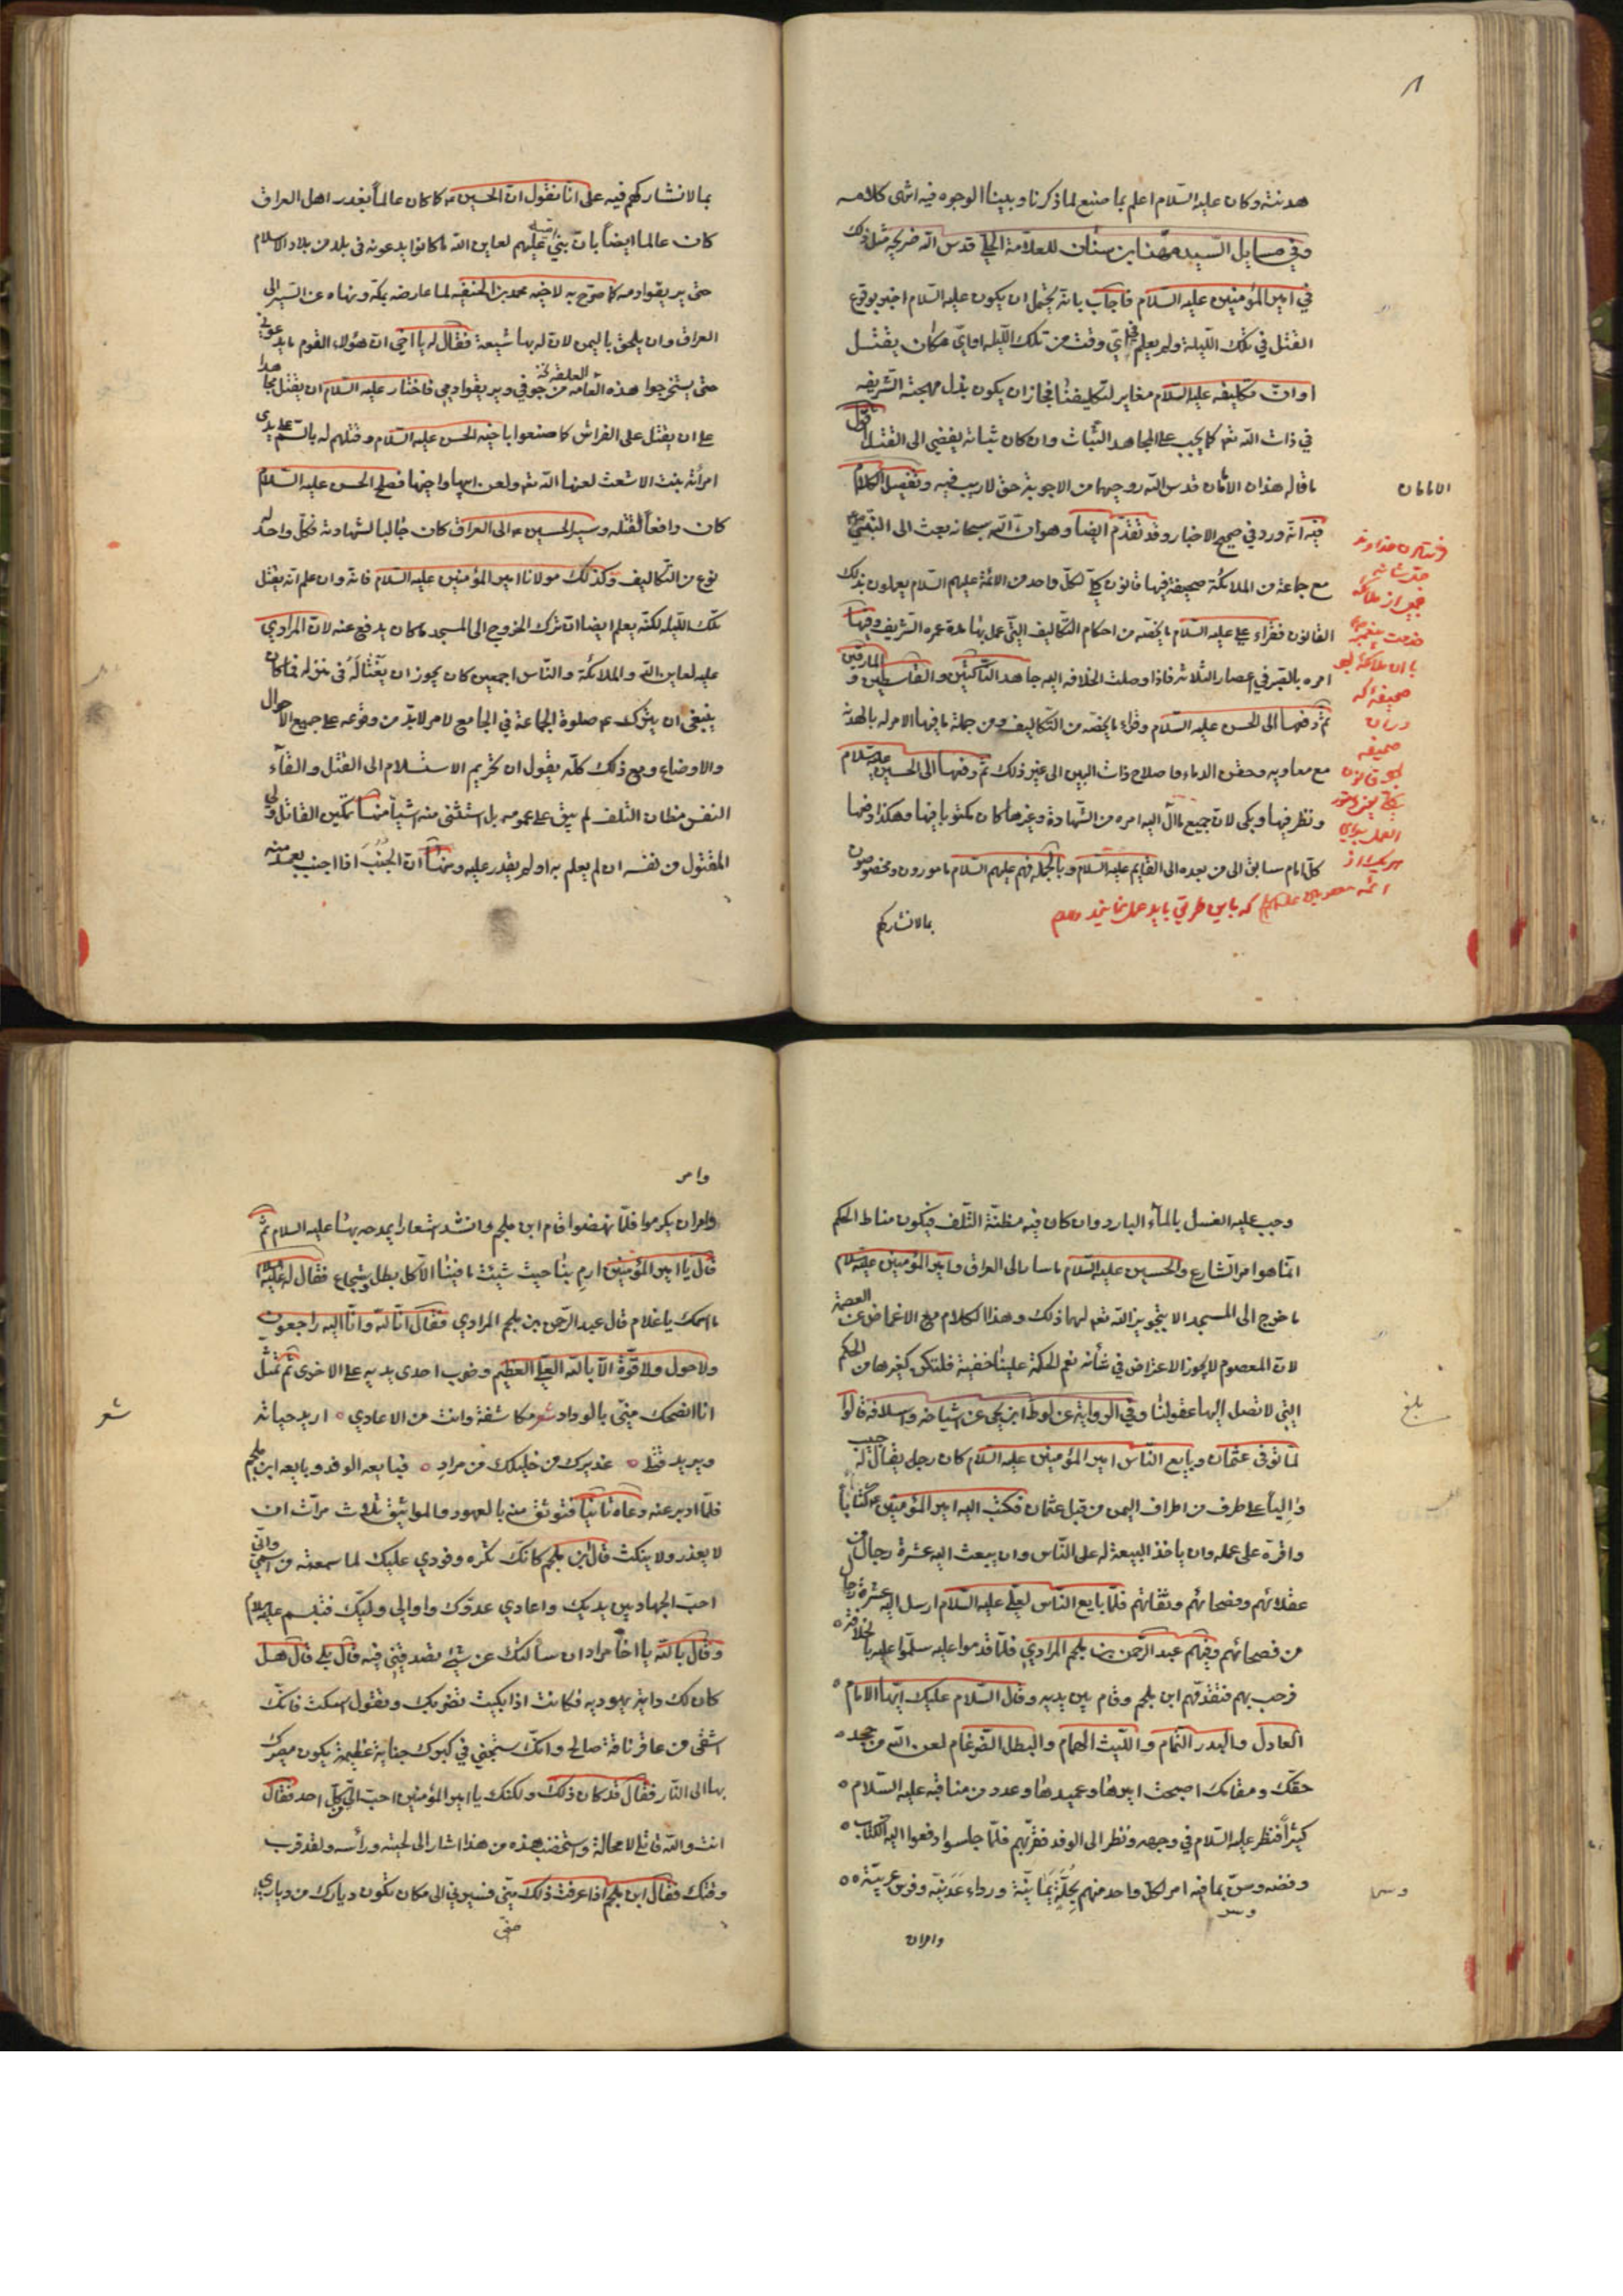 هدنته وكان عليه السّلام اعلم بما صنع لما ذكرنا وبينا الوجوه فيه انتهى كلامه
وفي مسايل السّيد مهنا بن سنان للعلامة الحلي قدس الله ضريحه مثل ذلك
في امير المؤمنين عليه السّلام فاجاب بانه يحتمل ان يكون عليه السّلام اخبر بوقوع
القتل في تلك اللّيلة ولم يعلم في اي وقت من تلك اللّيله او اي مكان يقتل
او انّ تكليفه عليه السّلام مغاير لتكليفنا فجاز ان يكون بذل مهجته الشّريفه
في ذات الله تعالى كما يجب على المجاهد الثبات وان كان ثباته يفضي الى القتل اقول
ما قاله هذان الامامان قدس الله روحيهما من الاجوبة حق لا ريب فيه وتفصيل الكلام
فيه انّه ورد في صحيح الاخبار وقد تقدّم ايضا وهو ان الله سبحانه بعث الى النبي
مع جماعة من الملائكة صحيفة فيها قانون كلي لكلّ واحد من الائمة عليهم السّلام يعملون بذلك
القانون فقراء علي عليه السّلام ما يخصّه من احكام التكاليف التي عمل بها مدة عمره الشريف وفيها
امره بالصبر في اعصار الثلاثة فاذا وصلت الخلافه اليه جاهد النّاكثين والقاسطين والمارقين
ثمّ دفعها الى الحسن عليه السّلام وقراء ما يخصّه من التّكاليف ومن جملة ما فيها الامر له بالهدنة
مع معاويه وحقن الدماء واصلاح ذات البين الى غير ذلك ثمّ دفعها الى الحسين عليه السلام
ونظر فيها وبكى لان جميع ما آل اليه امره من الشّهادة وغيرها كان مكتوبا فيها وهكذا دفعها
كلّ امام سابق الى من بعده الى القايم عليه السّلام وبالجمله فهم عليهم السّلام مامورون ومخصوصون
بما لا نشاركهم
الامامان
صحيفه كه
در ان
صحيفه
كه باين طريق بايد عمل نمايند
بما لا نشاركهم فيه على انّا نقول ان الحسين ع كما كان عالماً بغدر اهل العراق
كان عالما ايضاً بان بني امية عليهم لعاين الله ما كانوا يدعونه في بلد من بلاد الاسلام
حتى يريقوا دمه كما صرّح به لاخيه محمد بن الحنفيه لما عارضه بمكة ونهاه عن السّير الى
العراق وان يلحق باليمن لان له بها شيعة فقال له يا اخي ان هؤلاء القوم ما يدعوني
حتى يستخرجوا هذه العلقه من جوفي ويريقوا دمي فاختار عليه السّلام ان يقتل مجاهدا
على ان يقتل على الفراش كما صنعوا باخيه الحسن عليه السّلام وقتلهم له بالسّم على يدى
امرأته بنت الاشعث لعنها الله تعالى ولعن اباها واخيها فصلح الحسن عليه السّلام
كان دافعاً لقتله وسير الحسين ع الى العراق كان جالبا لشهادته فكلّ واحد له
نوع من التّكاليف وكذلك مولانا امير المؤمنين عليه السّلام فانه وان علم انه يقتل
تلك اللّيلة لكنّه يعلم ايضا ان ترك الخروج الى المسجد ما كان يدفع عنه لان المرادي
عليه لعاين الله والملائكة والنّاس اجمعين كان يجوز ان يغتاله في منزله فما كان
ينبغي ان يترك ع صلوة الجماعة في الجامع لامر لابدّ من وقوعه على جميع الاحوال
والاوضاع ومع ذلك كلّه يقول ان تحريم الاستسلام الى القتل والقآء
النفس مظان التلف لم يبق على عمومه بل استثنى منه اشيآ منها تمكين القاتل ولى
المقتول من نفسه ان لم يعلم به او لم يقدر عليه ومنها ان الجنب اذا اجنب بعمد منه
وجب عليه الغسل بالمآء البارد وان كان فيه مظنّة التّلف فيكون مناط الحكم
انّما هو امر الشارع والحسين عليه السّلام ما سار الى العراق وامير المؤمنين عليه السلام
ما خرج الى المسجد الا بتجويز الله تعالى لهما ذلك وهذا الكلام مع الاغماض عن العصمة
لان المعصوم لا يجوز الاعتراض في شأنه نعم الحكمة علينا خفية فلتكن كغيرها من الحكم
التي لا تصل اليها عقولنا وفي الرواية عن لوط ابن يحيى عن اشياخه واسلافه قالوا
لمّا توفى عثمان وبايع النّاس امير المؤمنين عليه السّلام كان رجل يقال له حبيب
والياً على طرف من اطراف اليمن من قبل عثمان فكتب اليه امير المؤمنين ع كتاباً
واقرّه على عمله وان ياخذ البيعة له على النّاس وان يبعث اليه عشرة رجال من
عقلائهم وفصحائهم وثقاتهم فلمّا بايع النّاس لعلي عليه السّلام ارسل اليه عشرة رجال
من فصحائهم وفيهم عبد الرّحمن بن ملجم المرادي فلمّا قدموا عليه سلّموا عليه بالخلافة
فرحب بهم فتقدّمهم ابن ملجم وقام بين يديه وقال السّلام عليك ايّها الامام
العادل والبدر التّمام والليث الهمام والبطل الضّرغام لعن الله من جحد
حقّك ومقامك اصبحت اميرها وعميدها وعدد من مناقبه عليه السّلام
كثيراً فنظر عليه السّلام في وجهه ونظر الى الوفد فقرّبهم فلمّا جلسوا دفعوا اليه الكتاب
وفضه وسرّ بما فيه امر لكلّ واحد منهم بحلّة يمانيّة ورداء عدنيّة وفرس عربيّة
وامران
بلغ
وامر
وامر ان يكرموا فلمّا نهضوا قام ابن ملجم وانشد اشعارا يمدحه بها عليه السلام ثمّ
قال يا امير المؤمنين ارم بنا حيث شئت ما فينا الا كل بطل وشجاع فقال له عليه السلام
ما اسمك يا غلام قال عبد الرّحمن بن ملجم المرادي فقال انّا لله وانّا اليه راجعون
ولا حول ولا قوّة الّا بالله العليّ العظيم وضرب احدى يديه على الاخرى ثمّ تمثّل
انا انصحك منّي بالوداد شعر مكاشفة وانت من الاعادي ٥ اريد حياته
ويريد قتلي ٥ عذيرك من خليلك من مراد ٥ فبايعه الوفد وبايعه ابن ملجم
فلمّا ادبر عنه دعاه ثانيا فتوثق منه بالعهود والمواثيق ثلاث مرّات ان
لا يغدر ولا ينكث قال ابن ملجم كانّك تكره وفودي عليك لما سمعته من اسمي وانّي
احبّ الجهاد بين يديك واعادي عدوّك واوالي وليّك فتبسم عليه السلام
وقال بالله يا اخا مراد ان سألتك عن شئ تصدقني فيه قال بلى قال هل
كان لك داية يهوديه فكانت اذا بكيت تضربك وتقول اسكت فانّك
اشقى من عاقر ناقة صالح وانّك ستجني في كبرك جناية عظيمة يكون مصيرك
بها الى النّار فقال قد كان ذلك ولكنك يا امير المؤمنين احبّ الي من كل احد فقال
انت والله قاتلي لا محالة وستخضب هذه من هذا اشار الى لحيته ورأسه ولقد قرب
وقتك فقال ابن ملجم اذا عرفت ذلك منّي فسيّرني الى مكان تكون ديارك من دياري
شعر